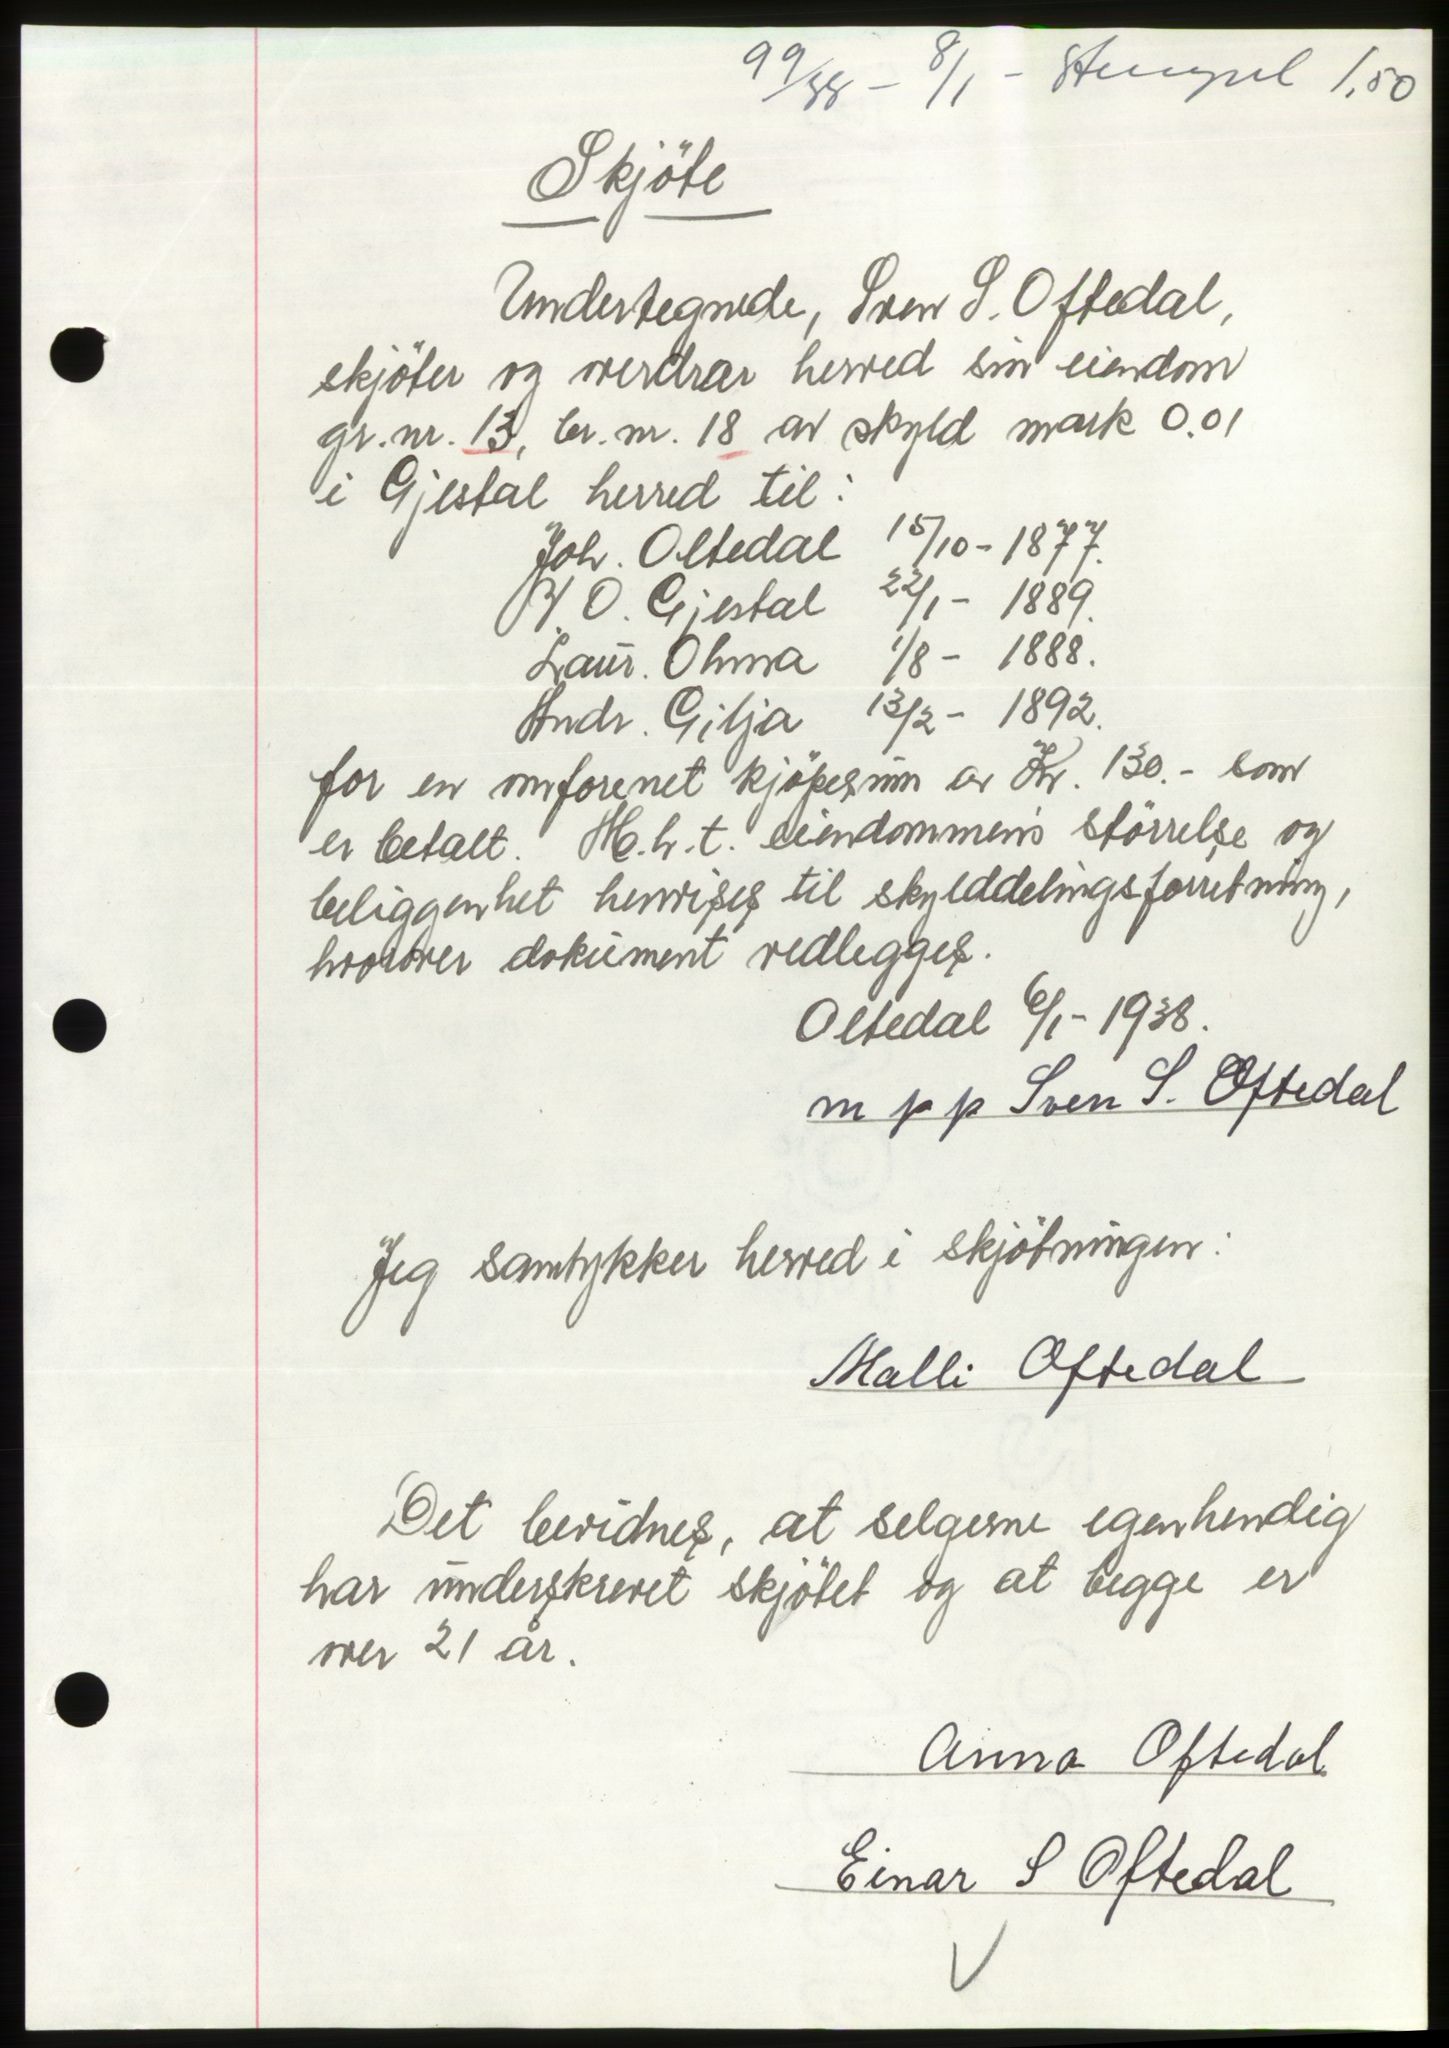 99/38 - 8/1 - Stempel 1,50
Skjöte
Undertegnede, Sven S. Oftedal,
skjöter og overdrar herved sin eiendom
gr. nr. 13, br. nr. 18 av skyld mark 0.01
i Gjestal herred til:
Joh. Oltedal 15/10 - 1877.
O. Gjestal 22/1 - 1889.
Laur. Olima 1/8 - 1888.
Andr. Gilja 13/2 - 1892.
for en omforenet kjöpesum av Kr. 130.- som
er betalt. M.h.t. eiendommens störrelse og
beliggenhet henvises til skylddelingsforretning,
hvorover dokument vedlegges.
Oltedal 6/1 - 1938.
m p p Sven S. Oftedal
Jeg samtykker herved i skjötningen:
Malli Oftedal
Det bevidnes, at selgerne egenhendig
har underskrevet skjötet og at begge er
over 21 år.
Anna Oftedal
Einar S Oftedal